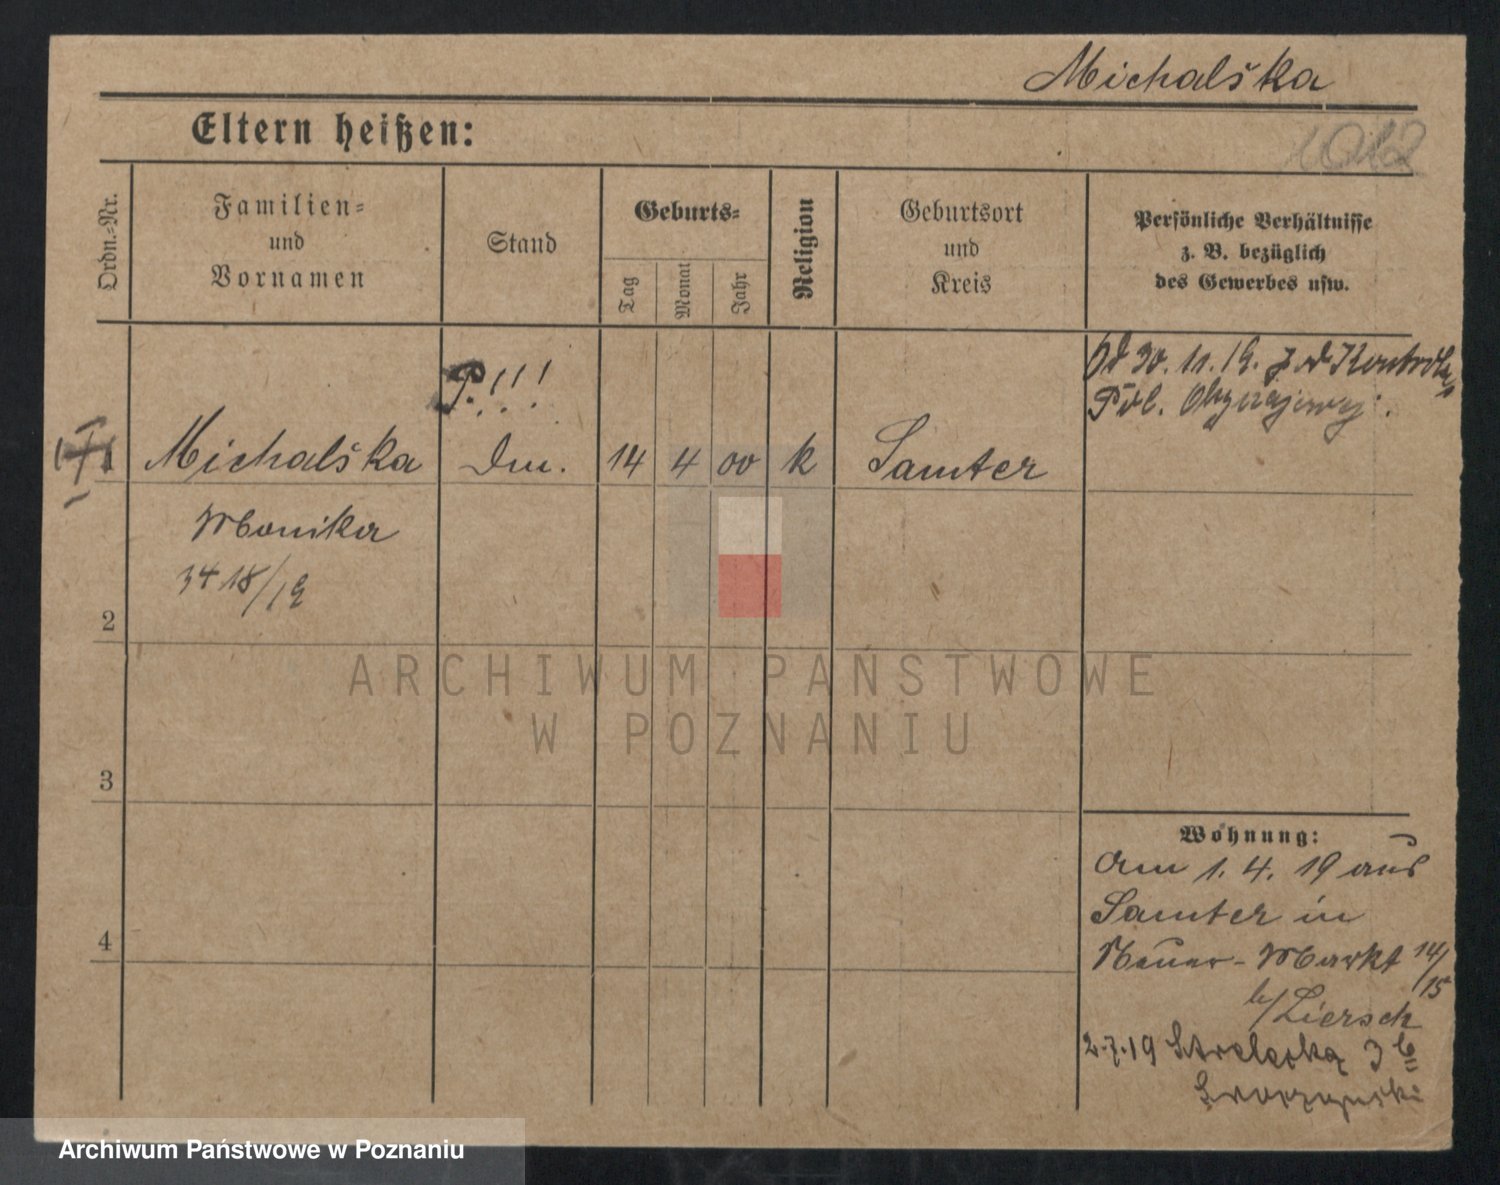 Michalska
Eltern heißen:
1012
Ordn.-Nr.
Familien-
und
Vornamen
Stand
Geburts-
Tag
Monat
Jahr
Religion
Geburtsort
und
Kreis
Persönliche Verhältnisse
z. B. bezüglich
des Gewerbes usw.
Od 30. 11. 19. pod Kontrolą
Pol. Obyczajowej.
P.!!!
Michalska
Dm.
14
4
00
k
Samter
Monika
3418/19
2
3
4
Wohnung:
Am 1. 4. 19 aus
Samter in
Neuer-Markt 14/15
b/Liersch
2.7.19 Strzelecka 3
ARCHIWUM PAŃSTWOWE
W POZNANIU
Archiwum Państwowe w Poznaniu